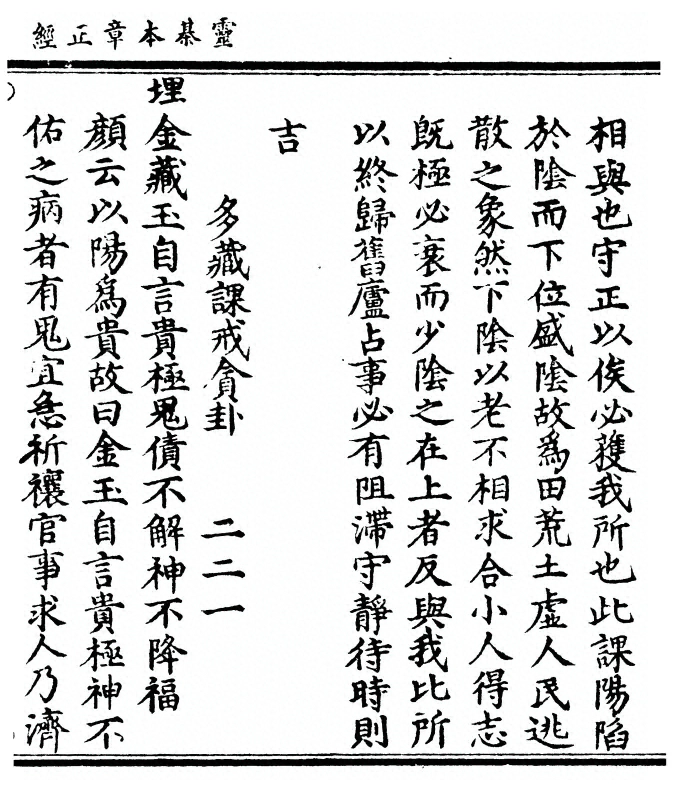 靈棊本章正經
相與也守正以俟必獲我所也此課陽陷
於陰而下位盛陰故為田荒土虛人民逃
散之象然下陰以老不相求合小人得志
既極必衰而少陰之在上者反與我比所
以終歸舊廬占事必有阻滯守靜待時則
吉
多藏課戒貪卦 二二一
埋金藏玉自言貴極鬼債不解神不降福
顏云以陽為貴故曰金玉自言貴極神不
佑之病者有鬼宜急祈禳官事求人乃濟